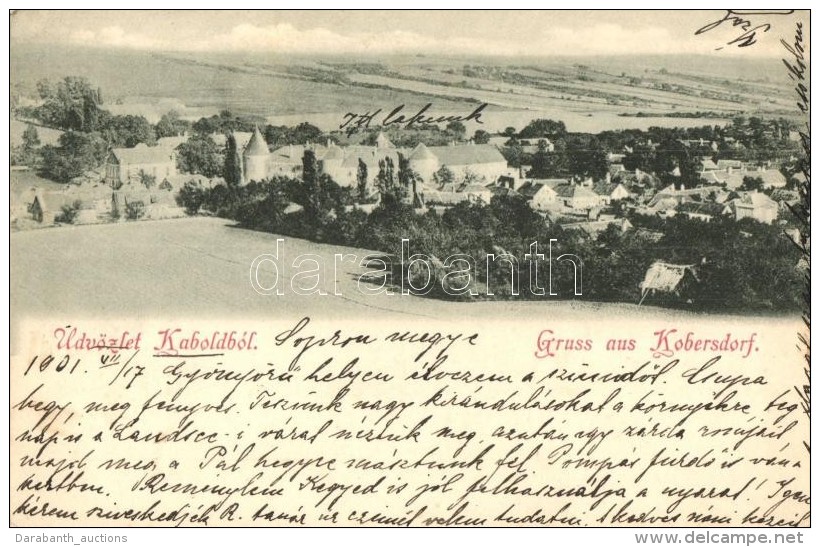 Itt lakunk
darabanth
Üdvözlet Kaboldból. Sopron megye
Gruss aus Kobersdorf.
1901. VII/17 Gyönyörű helyen élvezem a szünidőt. Csupa
hegy, meg fenyves. Teszünk nagy kirándulásokat a környékre, teg
nap is a Landsee-i várat néztük meg, azután egy zárda romjait
majd meg a Pál hegyre másztunk fel. Pompás fürdő is van a
kertben. Reménylem Kegyed is jól felhasználja a nyarat! Igen
kérem szíveskedjék R. tanár úr címét velem tudatni, A kedves néni kezeit
Darabanth_auctions
www.delcampe.net